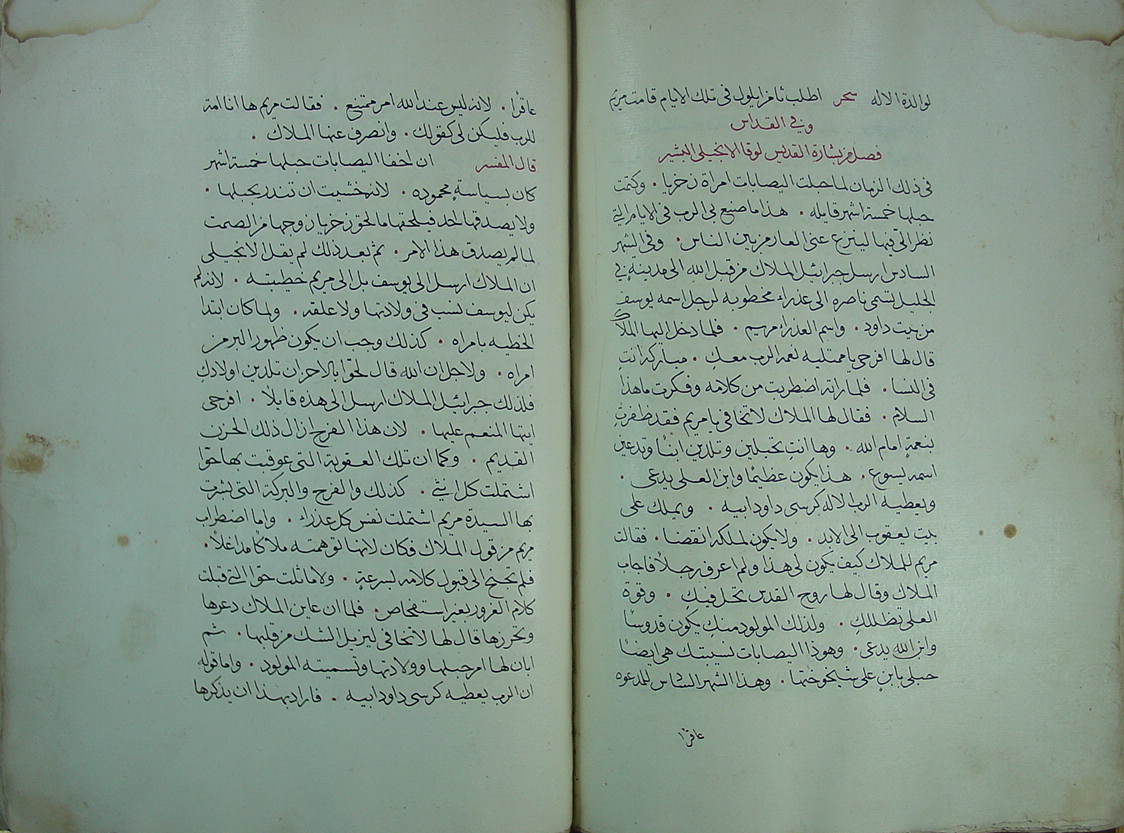 لوالدة الاله سحر اطلب ثامن ايلول في تلك الايام قامت مريم
وفي القداس
فصل من بشارة القديس لوقا الانجيلي البشير
في ذلك الزمان لما حبلت اليصابات امراة زخريا . وكتمت
حبلها خمسة اشهر قايله . هذا ما صنع لي الرب في الايام التي
نظر الي فيها لينزع عني العار من بين الناس . وفي الشهر
السادس ارسل جبرائيل الملاك من قبل الله الى مدينة في
الجليل تسمى ناصره الى عذراء مخطوبة لرجل اسمه يوسف
من بيت داود . واسم العذراء مريم . فلما دخل اليها الملاك
قال لها افرحي يا ممتليه نعمه الرب معكِ . مباركه انتِ
في النسا . فلما راته اضطربت من كلامه وفكرت ما هذا
السلام . فقال لها الملاك لا تخافي يا مريم فقد ظفرتِ
بنعمةٍ امام الله . وها انتِ تحبلين وتلدين ابنًا وتدعين
اسمه يسوع . هذا يكون عظيمًا وابن العلي يدعى .
ويعطيه الرب الاله كرسي داود ابيه . ويملك على
بيت يعقوب الى الابد . ولا يكون لملكه انقضا . فقالت
مريم للملاك كيف يكون لي هذا ولم اعرف رجلاً فاجاب
الملاك وقال لها روح القدس تحل فيكِ . وقوة
العلي تظللكِ . ولذلك المولود منكِ يكون قدوسًا
وابن الله يدعى . وهوذا اليصابات نسيبتك هي ايضًا
حبلى بابنٍ على شيخوختها . وهذا الشهر السادس للمدعوه
عاقرًا
عاقرًا . لانه ليس عند الله امر ممتنع . فقالت مريم ها انا امة
للرب فليكن لي كقولك . وانصرف عنها الملاك .
قال المفسر ان اخفا اليصابات حبلها خمسة اشهر
كان بسياسةٍ محموده . لانه خشيت ان تندر بحبلها .
ولا يصدقها احد فيلحقها ما لحق زخريا زوجها من الصمت
لما لم يصدق هذا الامر . ثم بعد ذلك لم يقل الانجيلي
ان الملاك ارسل الى يوسف بل الى مريم خطيبته . لانه لم
يكن ليوسف نسب في ولادتها ولا علقه . ولما كان ابتدا
الخطيه بامراه . كذلك وجب ان يكون ظهور البر من
امراه . ولاجل ان الله قال لحوا بالاحزان تلدين اولادكِ
فلذلك جبرائيل الملاك ارسل الى هذه قايلاً . افرحي
ايتها المنعم عليها . لان هذا الفرح ازال ذلك الحزن
القديم . وكما ان تلك العقوبة التي عوقبت بها حوّا
اشتملت كل انثى . كذلك والفرح والبركة التي بشرت
بها السيدة مريم اشتملت نفس كل عذراء . واما اضطراب
مريم من قول الملاك فكان لانها توهمته ملاكًا مداغلاً .
فلم تجنح الى قبول كلامه بسرعةٍ . ولا ماثلت حوّا التي قبلت
كلام الغرور بغير استفحاص . فلما ان عاين الملاك دعرها
وتحررها قال لها لا تخافي ليزيل الشك من قلبها . ثم
ابان لها امر حبلها وولادتها وتسميته المولود . واما قوله
ان الرب يعطيه كرسي داود ابيه . فاراد بهذا ان يذكرها